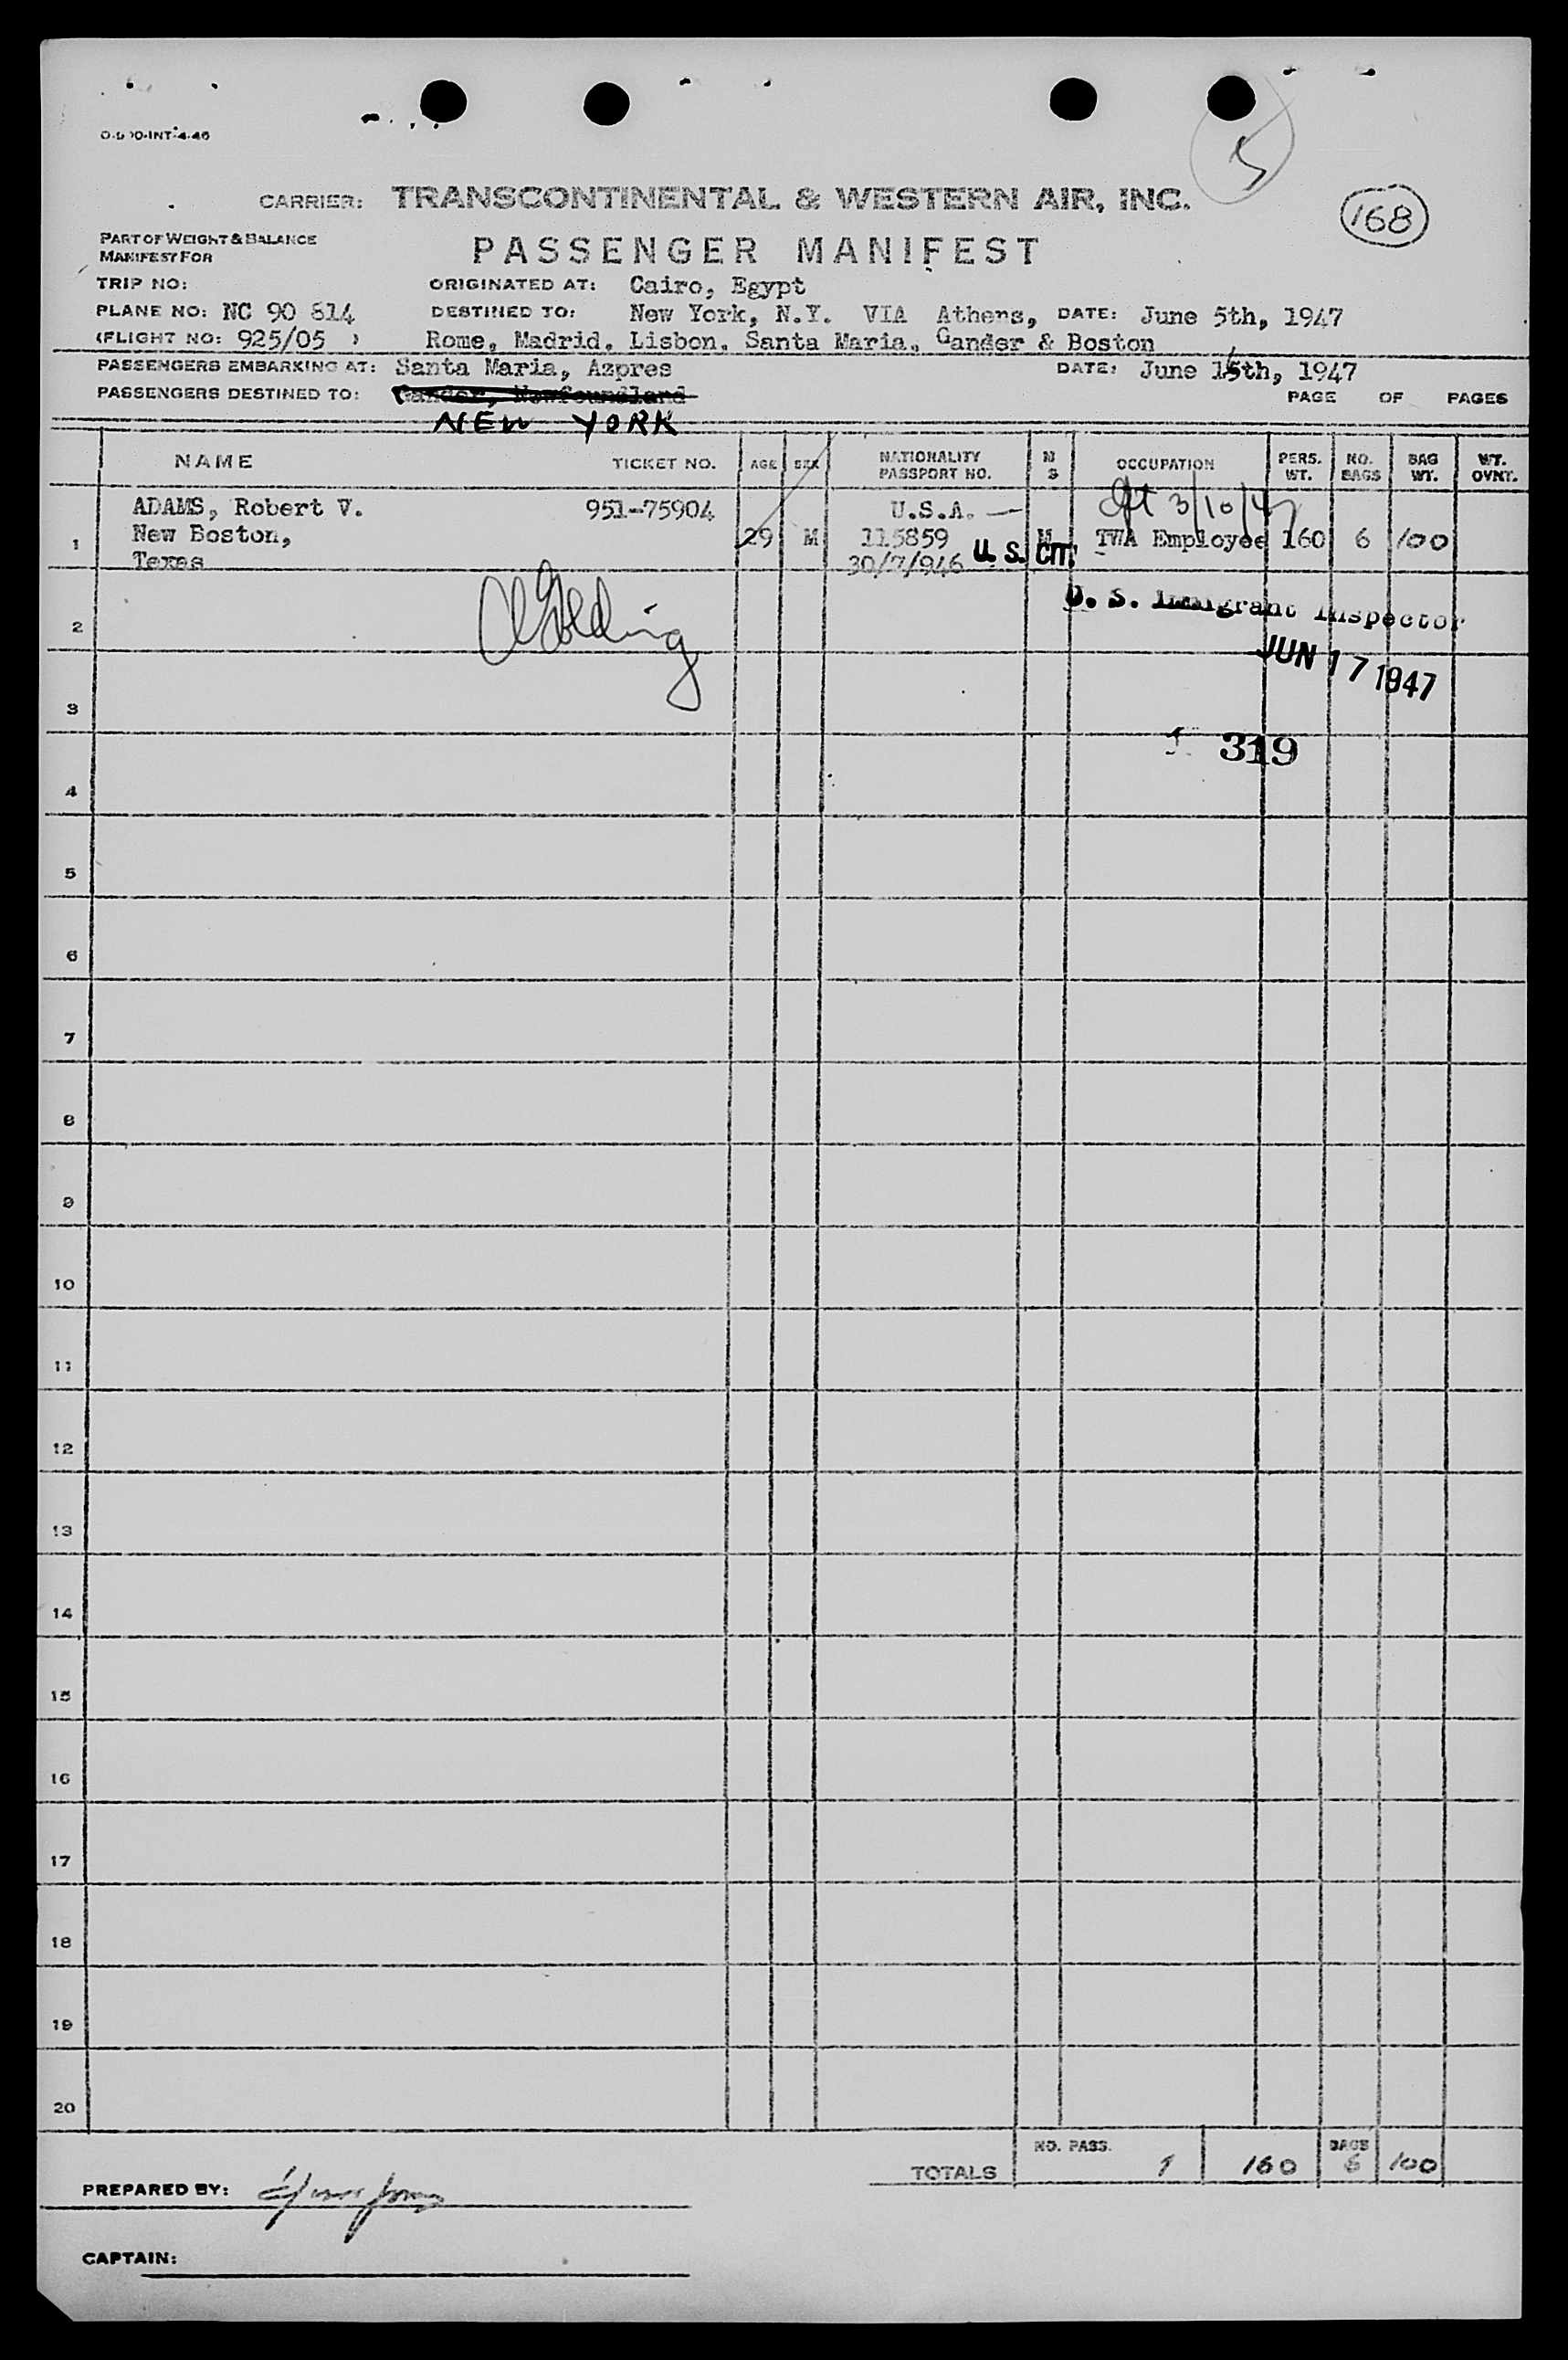 5
CARRIER: TRANSCONTINENTAL & WESTERN AIR, INC.
168
PART OF WEIGHT & BALANCE
MANIFEST FOR
PASSENGER MANIFEST
TRIP NO: ORIGINATED AT: Cairo, Egypt
PLANE NO: NC 90 814 DESTINED TO: New York, N.Y. VIA Athens, DATE: June 5th, 1947
(FLIGHT NO: 925/05 ) Rome, Madrid, Lisbon, Santa Maria, Gander & Boston
PASSENGERS EMBARKING AT: Santa Maria, Azpres DATE: June 16th, 1947
PASSENGERS DESTINED TO: Gander, Newfoundland PAGE OF PAGES
NEW YORK
NAME TICKET NO. AGE SEX NATIONALITY PASSPORT NO. M S OCCUPATION PERS. WT. NO. BAGS BAG WT. WT. OVNT.
ADAMS, Robert V. 951-75904 U.S.A. — 3/10/47
1 New Boston, 29 M 115859 M TWA Employee 160 6 100
Texas 30/7/946 U. S. CIT.
U. S. Immigrant Inspector
2 Golding
JUN 17 1947
3
319
4
5
6
7
8
9
10
11
12
13
14
15
16
17
18
19
20
TOTALS NO. PASS. 1 160 BAGS 6 100
PREPARED BY:
CAPTAIN: